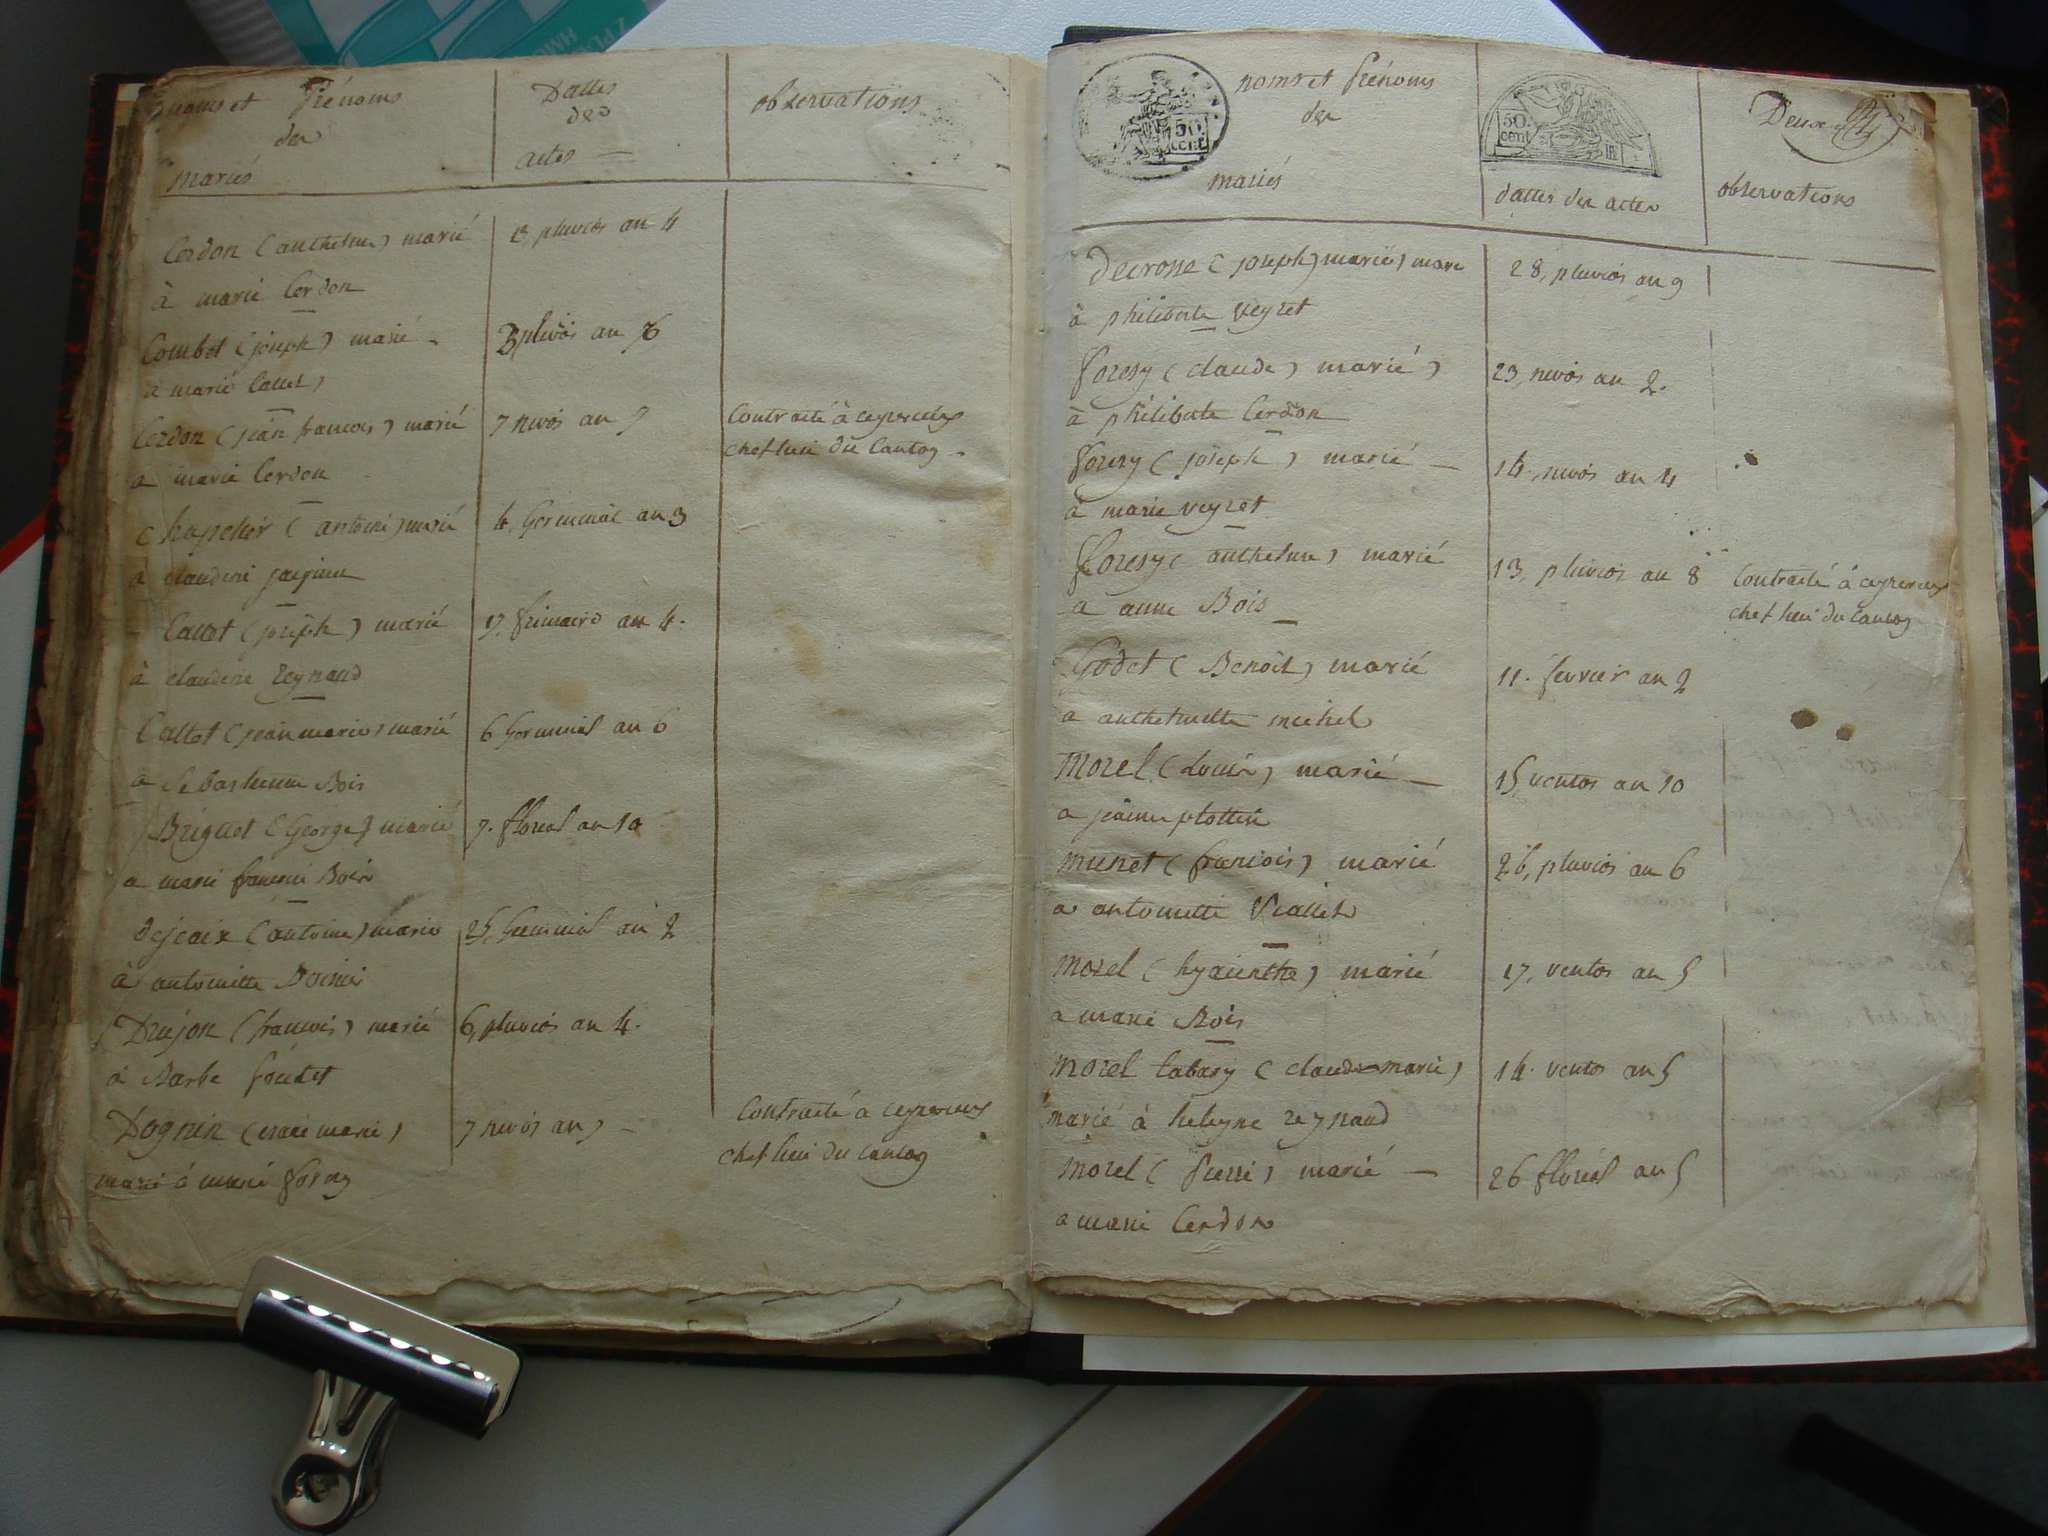 noms et Prénoms
des
Mariés
Dattes
des
actes —
observations
Cerdon (anthelme) marié
8, pluvios an 4
à marie Cerdon
Combet (joseph) marié
3 pluviôs an 6
à marie Callet
Cerdon (jean francois) marié
7 nivôs an 7
Contracté à ceyzerieux
chef lieu du Canton
a marie Cerdon
Chapellier (antoine) marié
4, Germinal an 3
à claudine
Callet (joseph) marié
17, frimaire an 4.
à claudine Reynaud
Callet (jean marie) marié
6 Germinal an 6
a Sebastienne Bois
Briguet (George) marié
7. floréal an 10
a marie francoise Bois
dejoux (antoine) marié
25, Germinal an 2
à antoinette
Drujon (francois) marié
6, pluviôs an 4.
à Barbe
Dognin (marie)
7 nivôs an 7 —
Contracté a ceyzerieux
chef lieu du Canton
marié à marie forey
50
cent
noms et Prénoms
des
mariés
50.
cent
dattes des actes
Deux
observations
Decrose (joseph) marié
28, pluvios an 9
à philiberte Veyret
foresy (claude) marié
23, nivôs an 2.
à philiberte Cerdon
foresy (joseph) marié —
14, nivôs an 4
à marie veyret
foresy (anthelme) marié
13, pluviôs an 8
Contracté à ceyzerieux
chef lieu du Canton
a anne Bois
Godet (Benoît) marié
11. fevrier an 2
a anthelmette michel
Morel (Louis) marié —
15, ventos an 10
a jeanne plottin
Munet (francois) marié
26, pluviôs an 6
a antoinette Viallet
Morel (hyacinthe) marié
17, ventos an 5
a marie Bois
Morel tabary (claude marie)
14. ventos an 5
marié à heleyne reynaud
Morel (Pierre) marié —
26 floréal an 5
a marie Cerdon